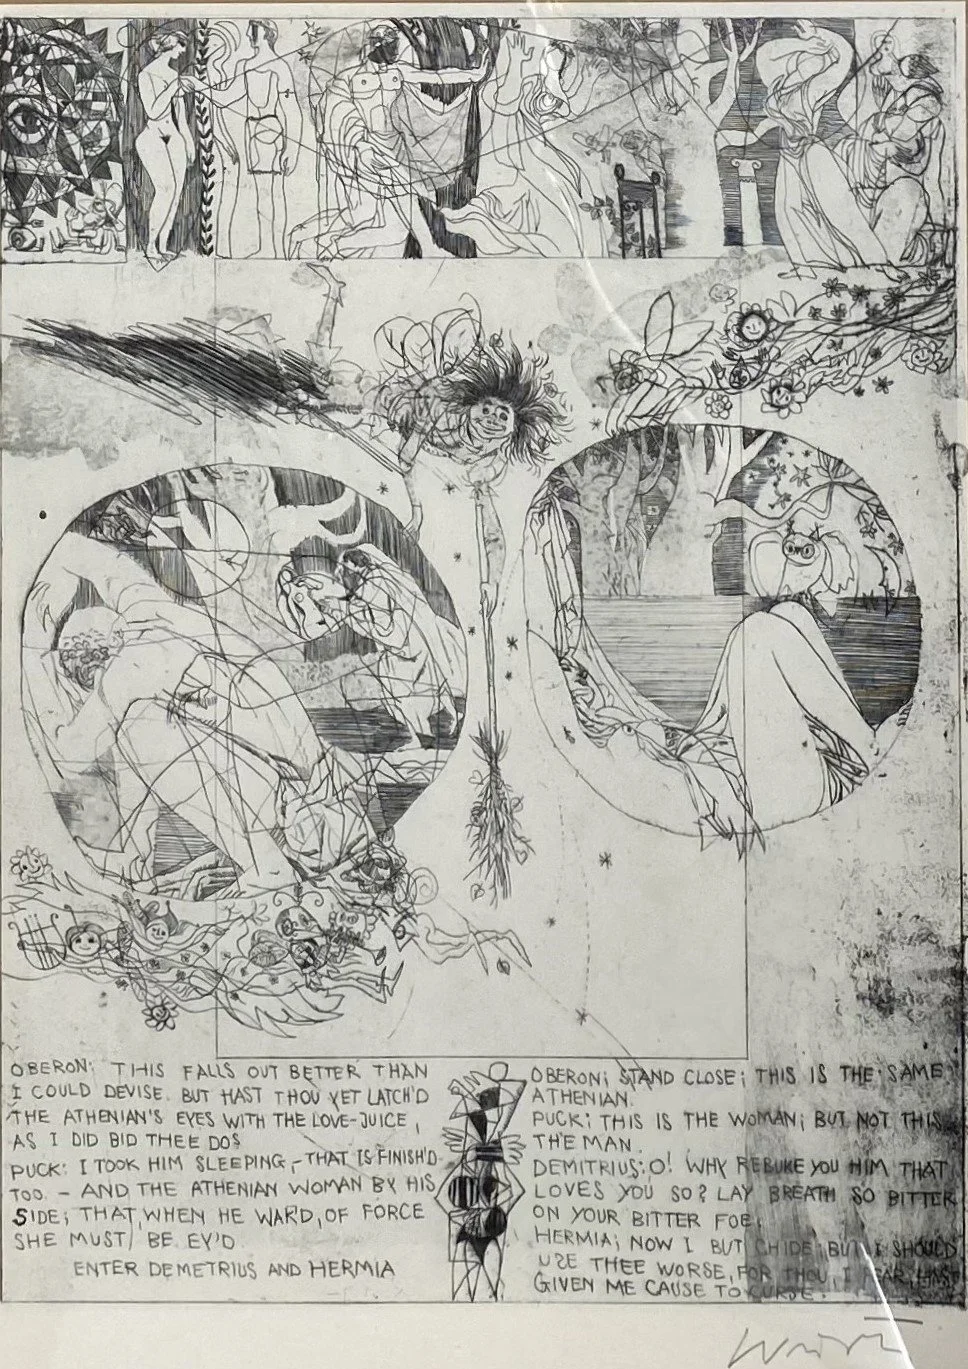 OBERON; THIS FALLS OUT BETTER THAN
I COULD DEVISE. BUT HAST THOU YET LATCH'D
THE ATHENIAN'S EYES WITH THE LOVE-JUICE,
AS I DID BID THEE DOS
PUCK: I TOOK HIM SLEEPING,-THAT IS FINISH'D
TOO. - AND THE ATHENIAN WOMAN BY HIS
SIDE; THAT, WHEN HE WAK'D, OF FORCE
SHE MUST BE EY'D.
ENTER DEMETRIUS AND HERMIA
OBERON; STAND CLOSE; THIS IS THE SAME
ATHENIAN.
PUCK; THIS IS THE WOMAN; BUT NOT THIS
THE MAN.
DEMITRIUS; O! WHY REBUKE YOU HIM THAT
LOVES YOU SO? LAY BREATH SO BITTER
ON YOUR BITTER FOE;
HERMIA; NOW I BUT CHIDE; BUT I SHOULD
USE THEE WORSE, FOR THOU, I FEAR, HAST
GIVEN ME CAUSE TO CURSE.